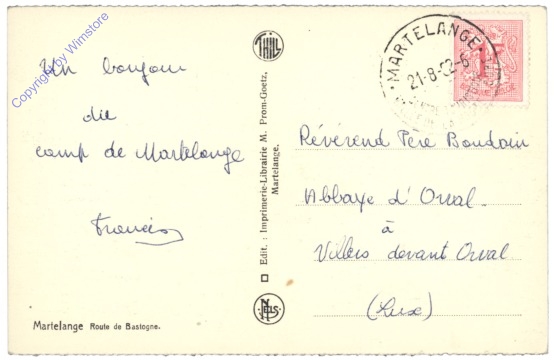 Copyright by Wimstore
Un bonjour
du
camp de Martelange
Francis
Martelange Route de Bastogne.
THILL
Edit. : Imprimerie-Librairie M. Prom-Goetz,
Martelange.
NELS
MARTELANGE
21-8-52-6
Révérend Père Boudain
Abbaye d'Orval
à
Villers devant Orval
(Lux)